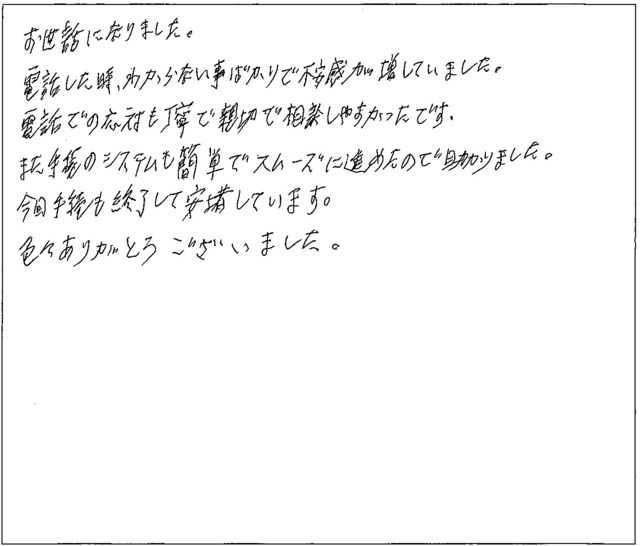 お世話になりました。
電話した時、わからない事ばかりで不安感が増していました。
電話での応対も丁寧で親切で相談しやすかったです。
また手続のシステムも簡単でスムーズに進めたので助かりました。
今回手続も終了して安堵しています。
色々ありがとうございました。